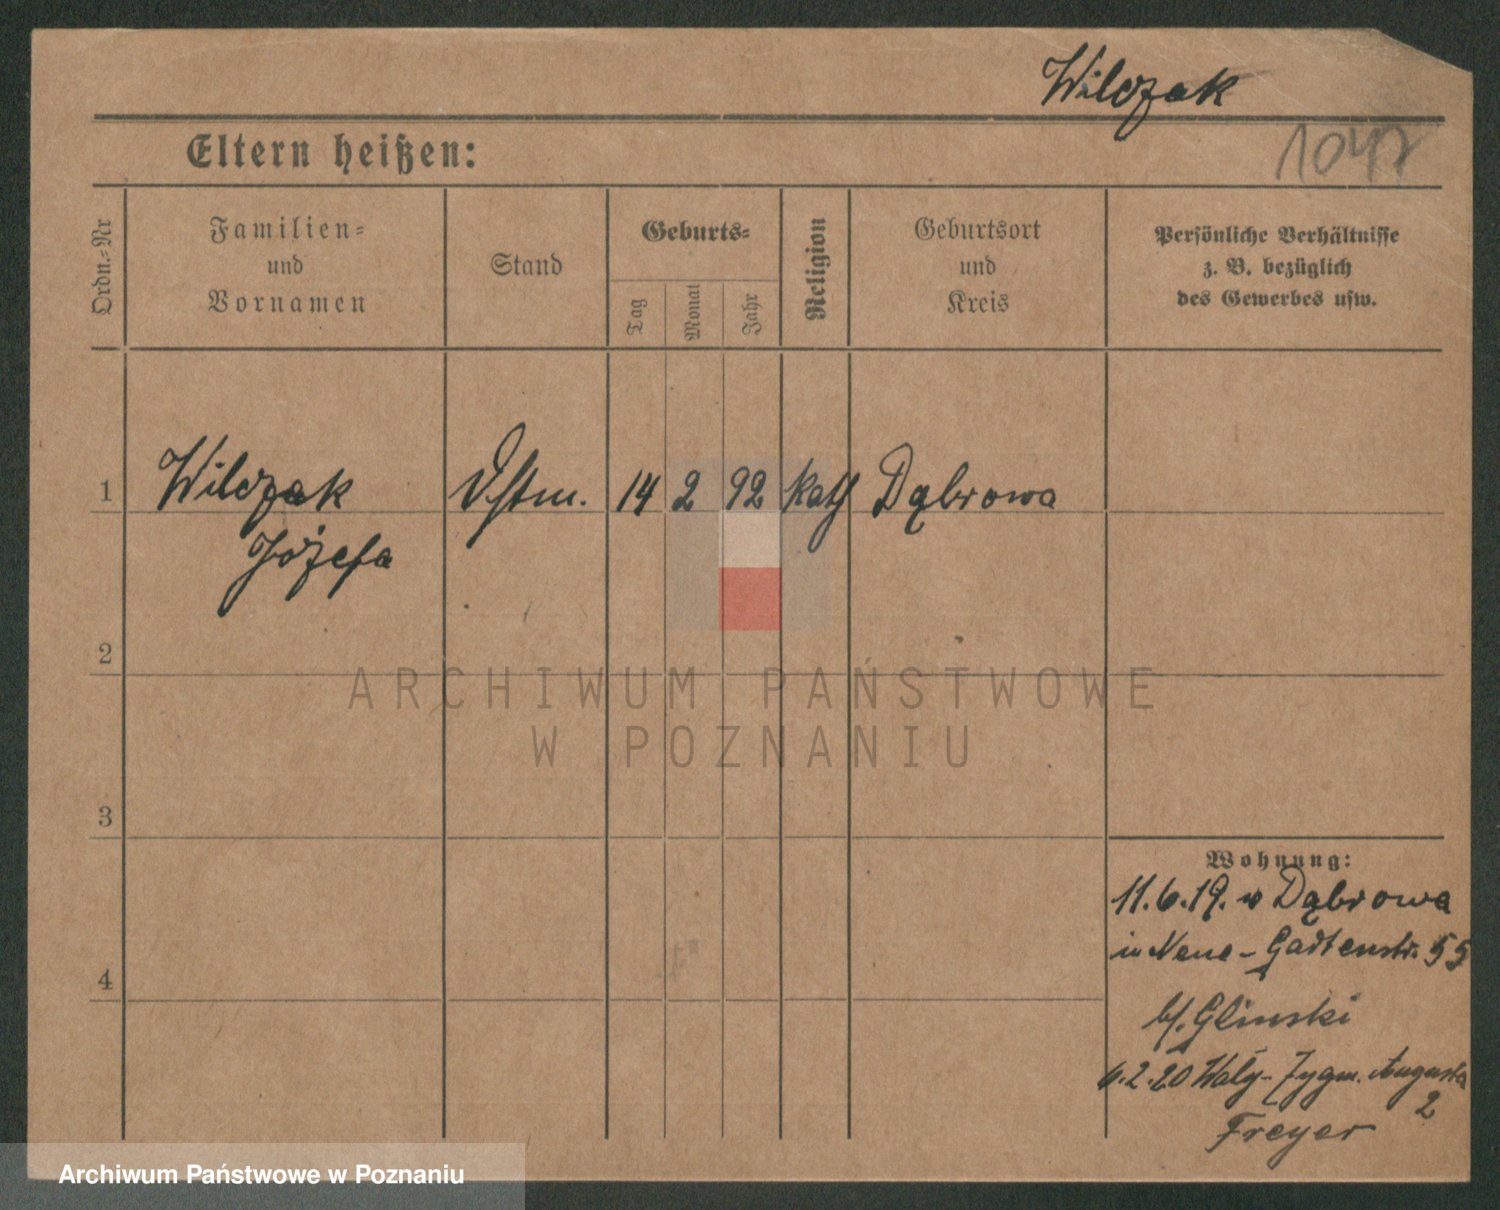 Wilczak
1047
Eltern heißen:
Ordn.-Nr
Familien-
und
Vornamen
Stand
Geburts-
Tag
Monat
Jahr
Religion
Geburtsort
und
Kreis
Persönliche Verhältnisse
z. B. bezüglich
des Gewerbes usw.
1 Wilczak 14 2 92 kath Dąbrowa
Józefa
2
ARCHIWUM PAŃSTWOWE
W POZNANIU
3
Wohnung:
11.6.19. w Dąbrowa
in Neue-Gartenstr. 55
4
b/. Glinski
6.2.20 Wały-Zygm. Augusta
2
Freyer
Archiwum Państwowe w Poznaniu